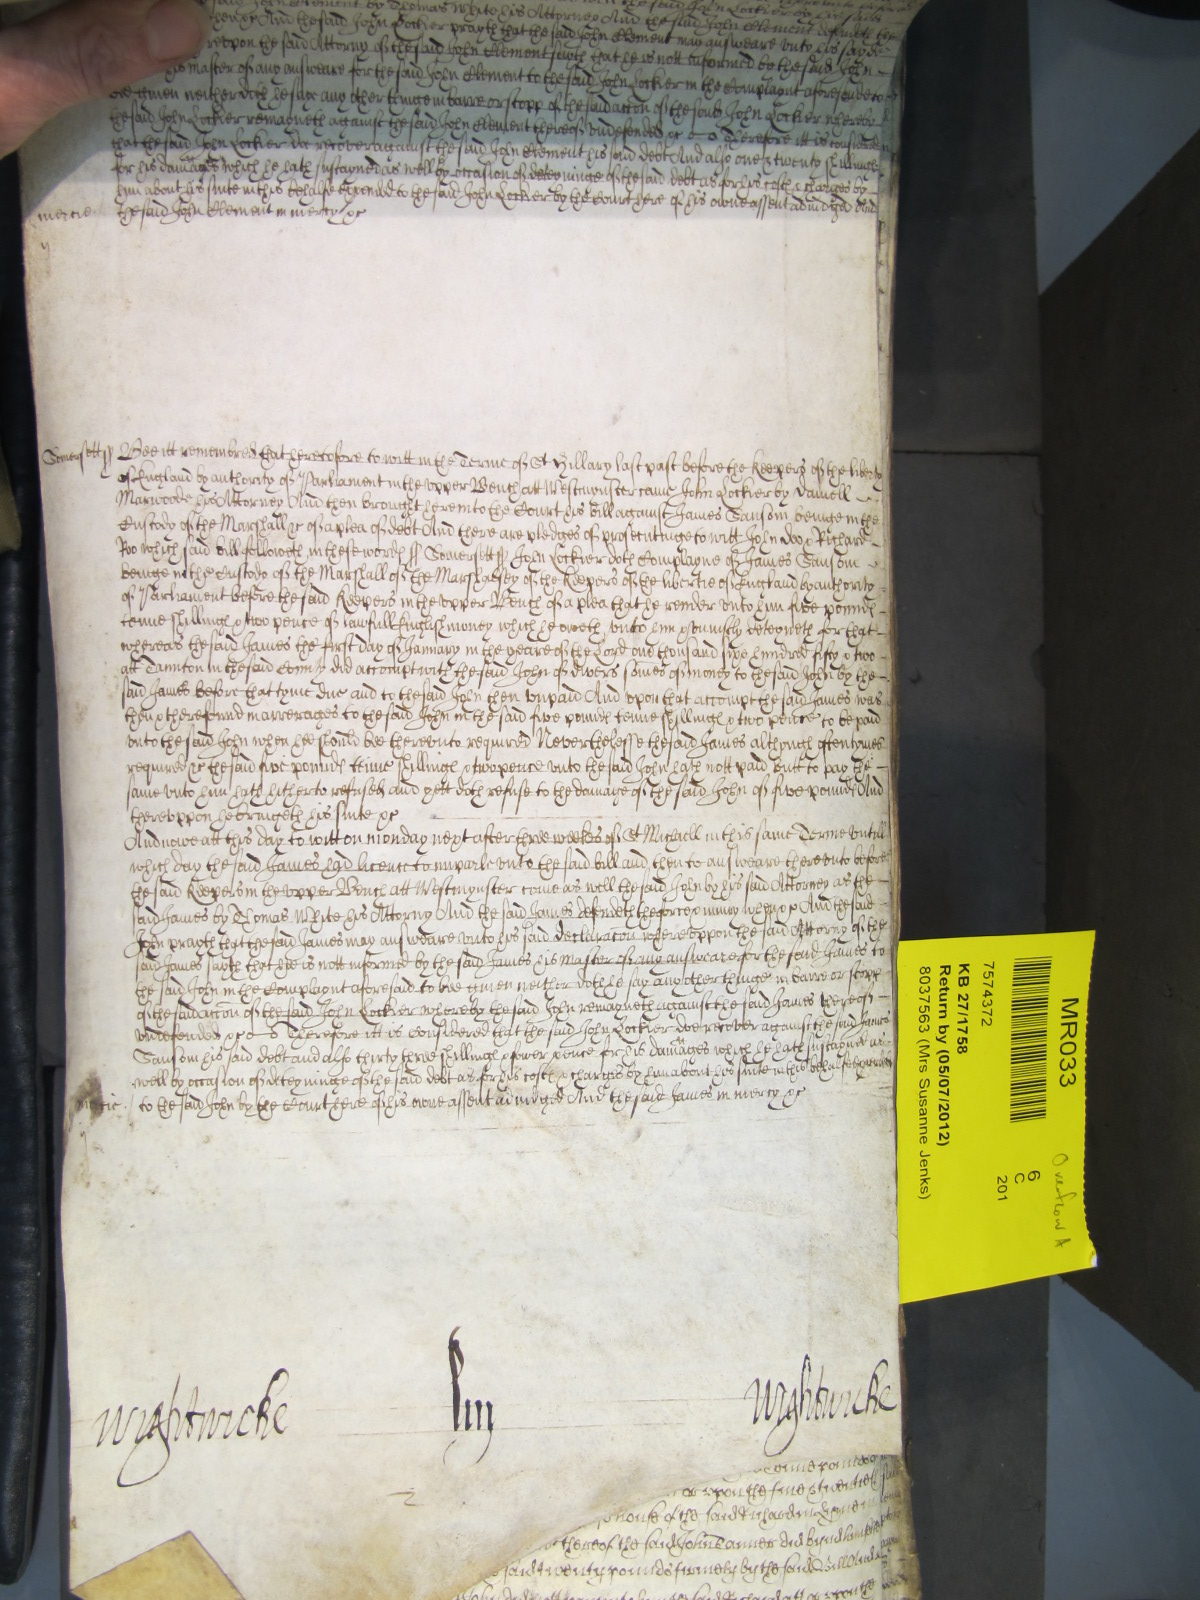 said John Clement by Thomas White his Attorney And the said John Clement
when &c And the said John Lockier prayth that the said John Clement may answeare vnto his said
wherevpon the said Attorny of the said John Clement sayth that he is nott informed by the said John
his master of any answeare for the said John Clement to the said John Lockier in the Complaynt aforesaid to
bee given neither doth he say any other thinge in barre or stopp of the said action of the said John Lockier whereby
the said John Lockier remayneth against the said John Clement thereof vndefended &c Therefore itt is considered
that the said John Lockier doe recover against the said John Clement his said debt And also one & twenty shillings
for his damages which he hath sustayned as well by occasion of deteyninge of the said debt as for his costs & charges by
him about his suite in this behalfe expended to the said John Lockier by the Court here of his owne assent adiudged And
mercie the said John Clement in mercy &c
Somersett ss Bee itt remembred that heretofore to witt in the Terme of St Hillary last past before the Keepers of the liberty
of England by authority of Parliament in the vpper Bench att Westmynster came John Lockier by Daniell
Marwoode his Attorney And then brought here into the Court his bill against James Sansom beinge in the
Custody of the Marshall &c of a plea of debt And there are pledges of prosecutinge to witt John Doo & Richard
Roo which said bill followeth in these words ss Somersett ss John Lockier doth Complayne of James Sansom
beinge in the Custody of the Marshall of the Marshalsey of the Keepers of the libertie of England by authority
of Parliament before the said Keepers in the vpper Bench of a plea that he render vnto him five pounds
tenne shillings & two pence of lawfull English money which he oweth vnto him & vniustly deteyneth for that
whereas the said James the first day of January in the yeare of the Lord one thousand sixe hundred fifty & two
att Taunton in the said County did accompt with the said John of divers somes of money to the said John by the
said James before that tyme due and to the said John then vnpaid And vpon that accompt the said James was
then & there found in arrerages to the said John in the said five pounds tenne shillings & two pence to be paid
vnto the said John when hee should bee therevnto required Neverthelesse the said James although oftentimes
required &c the said five pounds tenne shillings & two pence vnto the said John hath nott paid butt to pay the
same vnto him hath hitherto refused and yett doth refuse to the damage of the said John of five pounds And
therevppon he bringeth his suite &c
And nowe att this day to witt on monday next after three weekes of St Michaell in this same Terme vntill
which day the said James had licence to imparle vnto the said bill and then to answeare therevnto before
the said Keepers in the vpper Bench att Westmynster come as well the said John by his said Attorney as the
said James by Thomas White his Attorny And the said James defendeth the force & iniury when &c And the said
John prayth that the said James may answeare vnto his said declaracon wherevppon the said Attorny of the
said James sayth that hee is nott informed by the said James his Master of any answeare for the said James to
the said John in the Complaynt aforesaid to bee given neither doth he say any other thinge in barre or stopp
of the said action of the said John Lockier whereby the said John remayneth against the said James thereof
vndefended &c Therefore itt is considered that the said John Lockier doe recover against the said James
Sansom his said debt and also thirty three shillings & fower pence for his damages which he hath sustayned as
well by occasion of deteyninge of the said debt as for his costs & charges by him about his suite in this behalfe expended
mercie to the said John by the Court here of his owne assent adiudged And the said James in mercy &c
Wightwicke liiij Wightwicke
vpon the fine & twentieth
house of the said Richard
there of the said John Tanner did
said twenty pounds & firmely by the said
MR033
7574372
KB 27/1758
Return by (05/07/2012)
8037563 (Mrs Susanne Jenks)
6
C
201
Overflow A